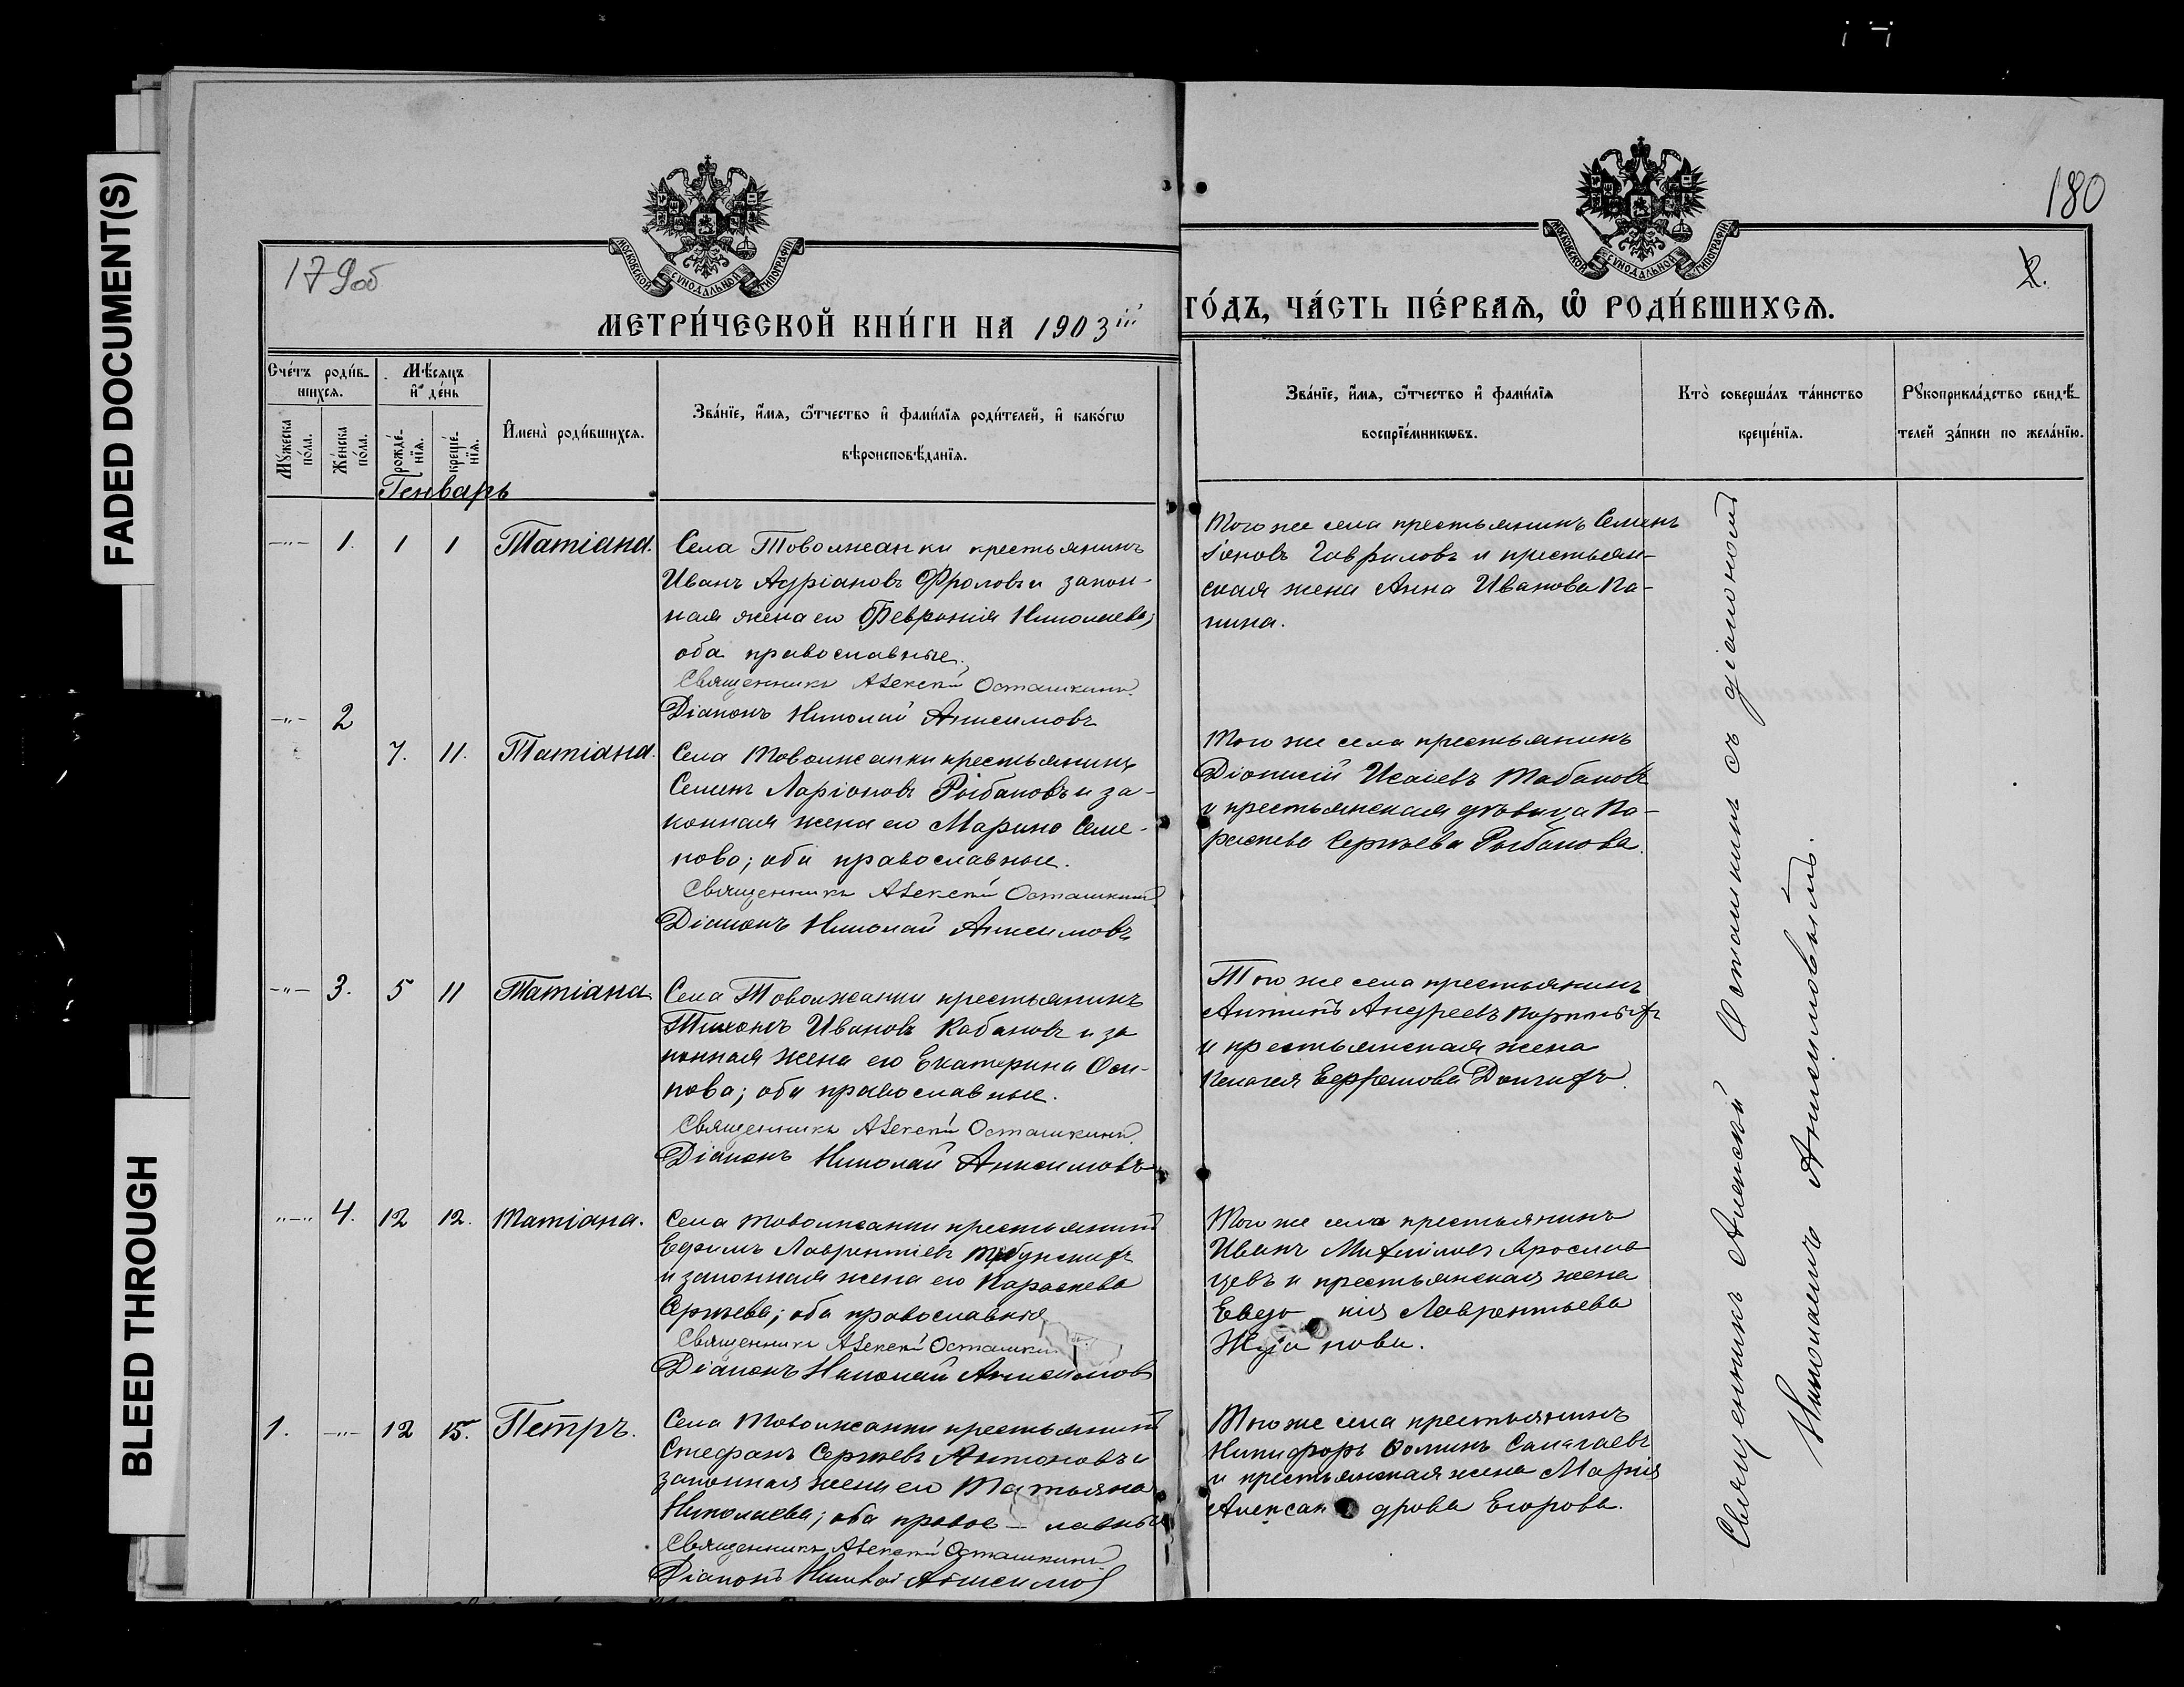 FADED DOCUMENT(S)
BLEED THROUGH
179об
180
2.
МОСКОВСКОЙ СѴНОДАЛЬНОЙ ТИПОГРАФІИ
МОСКОВСКОЙ СѴНОДАЛЬНОЙ ТИПОГРАФІИ
МЕТРИ́ЧЕСКОЙ КНИ́ГИ НА 1903 ій
ГО́ДЪ, ЧА́СТЬ ПЕ́РВАѦ, Ѡ҆ РОДИ́ВШИХСѦ.
Сче́тъ роди́в-
шихсѧ.
Мꙋ́жеска по́ла.
Же́нска по́ла.
Мѣ́сѧцъ
и҆ де́нь
рожде́-
нїѧ.
креще́-
нїѧ.
И҆мена̀ роди́вшихсѧ.
Зва́нїе, и҆́мѧ, ѻ҆́тчество и҆ фами́лїѧ роди́телей, и҆ како́гѡ
вѣроисповѣ́данїѧ.
Зва́нїе, и҆́мѧ, ѻ҆́тчество и҆ фами́лїѧ
воспрїе́мникѡвъ.
Кто̀ соверша́лъ та́инство
креще́нїѧ.
Рꙋкоприкла́дство свидѣ́-
телей за́писи по жела́нїю.
Генварь
-"- 1. 1 1 Татіана.
Села Товолжанки крестьянинъ
Иванъ Адріановъ Фроловъ и закон-
ная жена его Февронія Николаева;
оба православные.
Священникъ Алексѣй Осташкинъ.
Діаконъ Николай Анисимовъ
Того же села крестьянинъ Семенъ
Іоновъ Гавриловъ и крестьян-
ская жена Анна Иванова Па-
нина.
-"- 2 7. 11. Татіана.
Села Товолжанки крестьянинъ
Семенъ Ларіоновъ Рыбаковъ и за-
конная жена его Марина Семе-
нова; оба православные.
Священникъ Алексѣй Осташкинъ.
Діаконъ Николай Анисимовъ
Того же села крестьянинъ
Діонисій Исаіевъ Табаковъ
и крестьянская дѣвица Па-
раскева Сергѣева Рыбакова.
-"- 3. 5 11 Татіана
Села Товолжанки крестьянинъ
Тихонъ Ивановъ Кабановъ и за
конная жена его Екатерина Оси-
пова; оба православные.
Священникъ Алексѣй Осташкинъ.
Діаконъ Николай Анисимовъ
Того же села крестьянинъ
Антипъ Андреевъ
и крестьянская жена
Пелагея Долгихъ.
"-" 4. 12 12. Татіана.
Села Товолжанки крестьянинъ
Ефимъ Лаврентіевъ
и законная жена его Параскева
Сергѣева; оба православные
Священникъ Алексѣй Осташки
Діаконъ Николай Анисимовъ
Того же села крестьянинъ
Иванъ Михаиловъ Ярослав
цевъ и крестьянская жена
Евдо кія Лаврентьева
1. -"- 12 15. Петръ.
Села Товолжанки крестьянинъ
Стефанъ Сергѣевъ Антоновъ и
законная жена его Татьяна
Николаева; оба правос- лавные
Священникъ Алексѣй Осташкинъ
Діаконъ Николай Анисимовъ
Того же села крестьянинъ
Никифоръ Ѳоминъ
и крестьянская жена Марія
Алексан дрова Егорова.
Священникъ Алексѣй Осташкинъ съ діакономъ
Николаемъ Анисимовымъ.